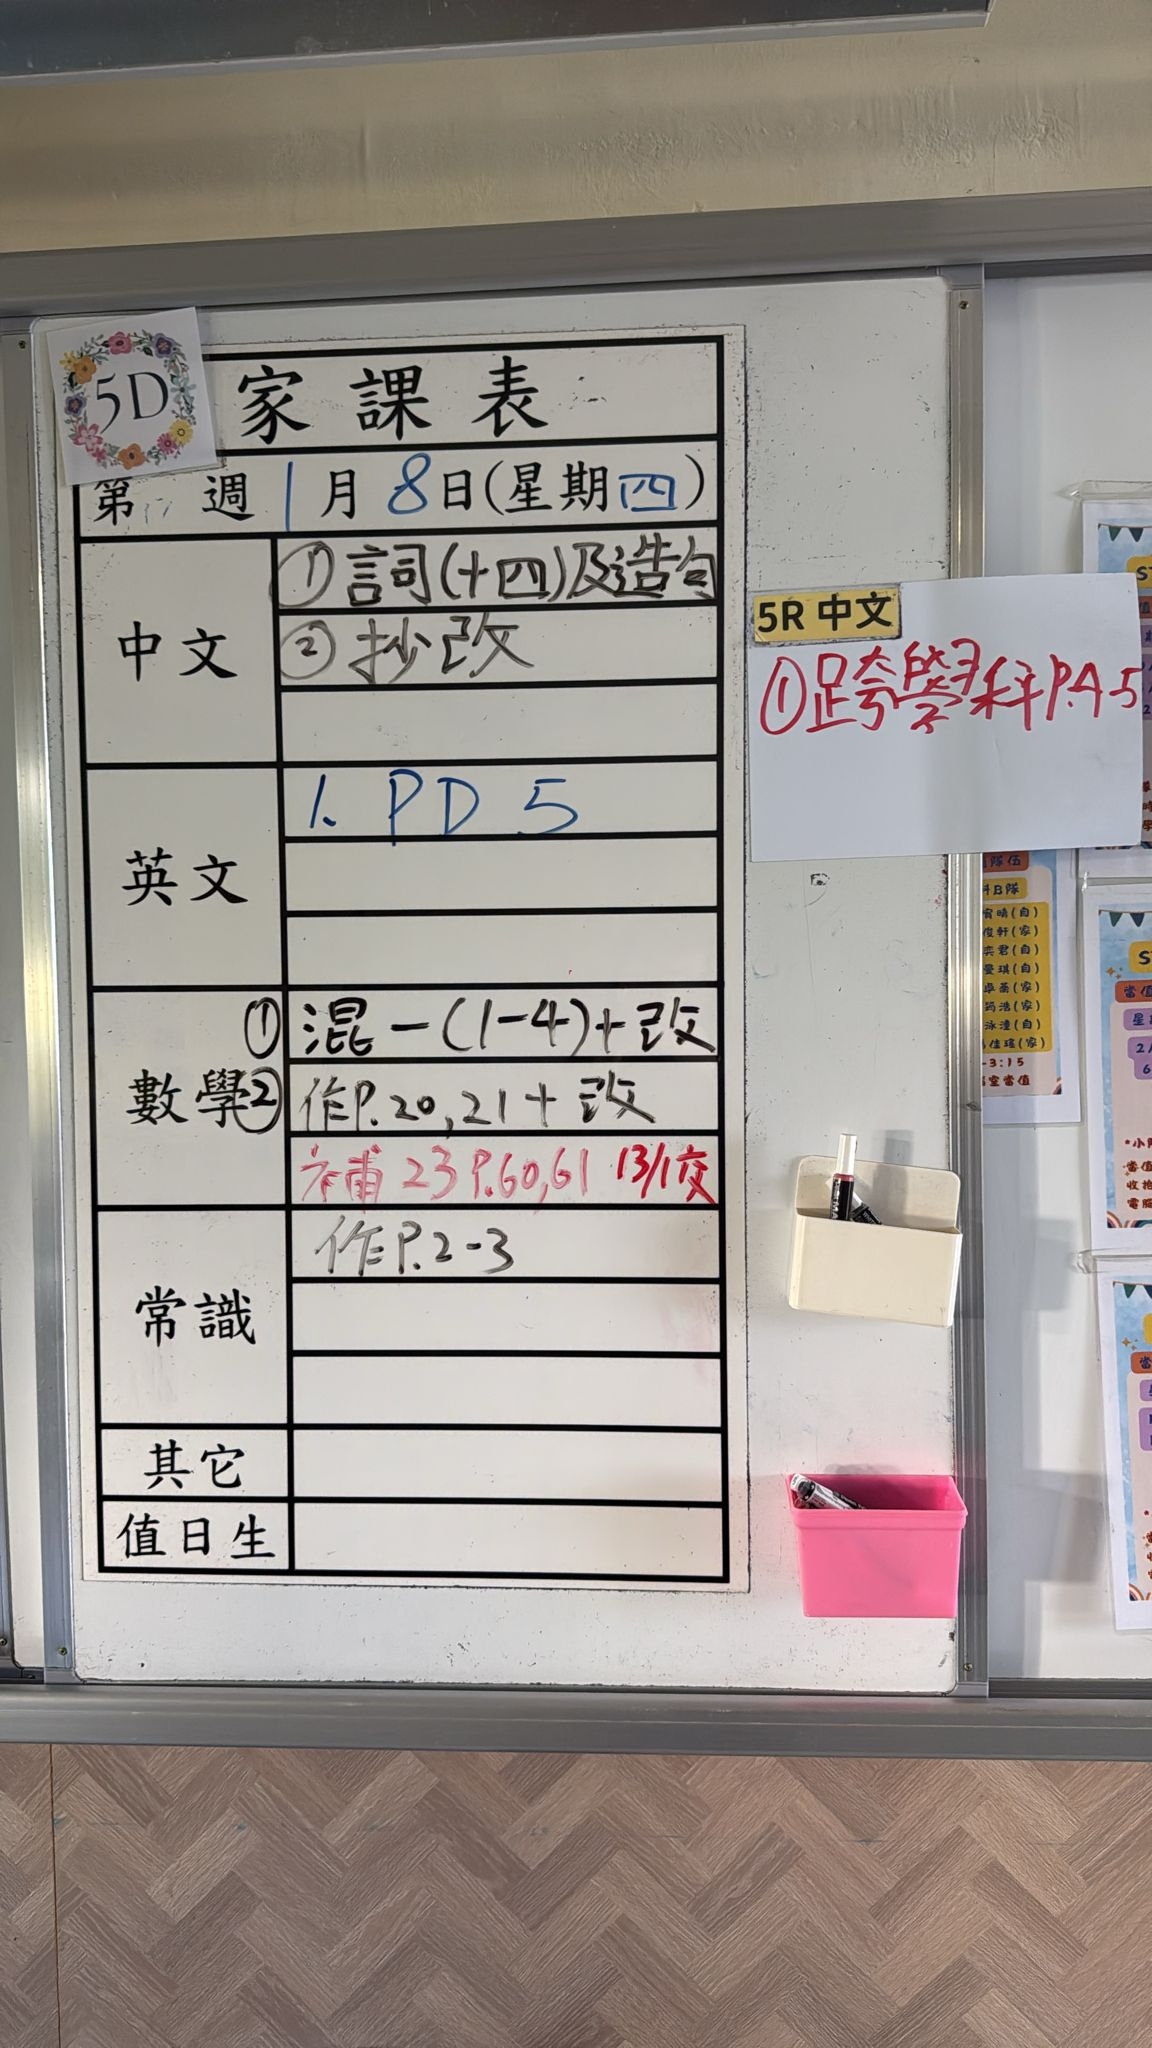 5D
家課表
第 週 1月8日(星期四)
中文
① 詞(十四)及造句
② 抄改
英文
1. PD 5
數學
① 混一(1-4)+改
② 作P.20,21+改
補 23 P.60,61 13/1交
常識
作P.2-3
其它
值日生
5R 中文
①跨學科P.4-5
隊伍
科B隊
俊軒(家)
奕君(自)
-3:15
室當值